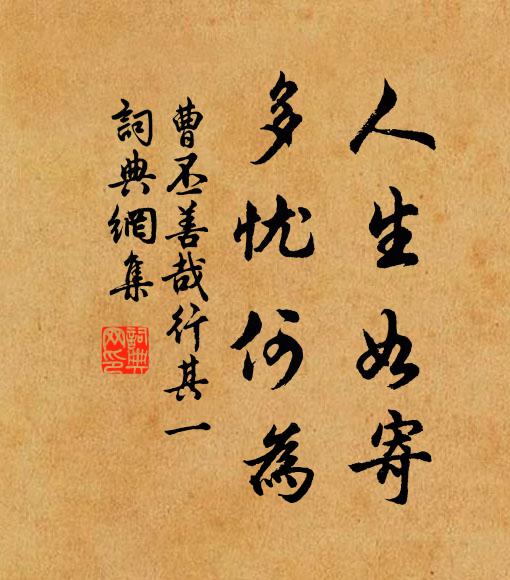 人生如寄
多忧何為
曹丕善哉行其一
詞典網集
詞典網印